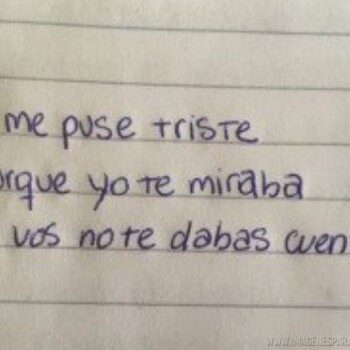 me puse triste
rque yo te miraba
vos no te dabas cuen
WWW.IMAGENESPAR